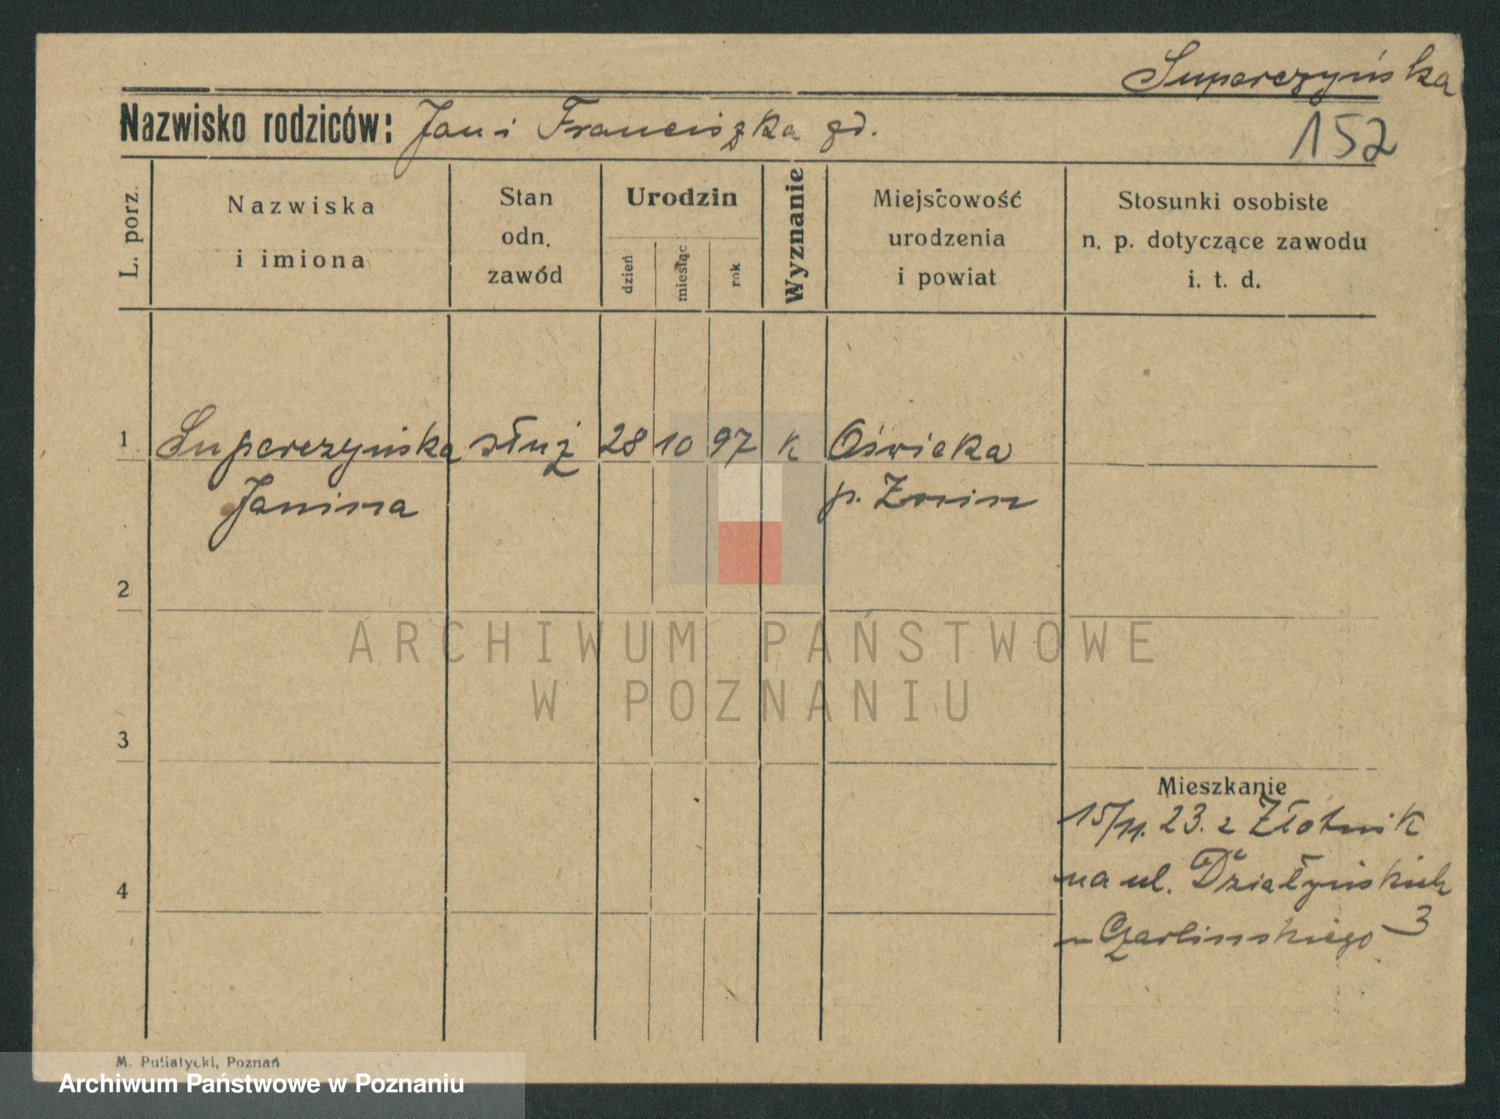 Superczyńska
Nazwisko rodziców: Jan i Franciszka zd.
152
L. porz.
Nazwiska
i imiona
Stan
odn.
zawód
Urodzin
dzień
miesiąc
rok
Wyznanie
Miejscowość
urodzenia
i powiat
Stosunki osobiste
n. p. dotyczące zawodu
i. t. d.
1 Superczyńska służ 28 10 97 k Oświeka
Janina p. Żnin
2
ARCHIWUM PAŃSTWOWE
W POZNANIU
3
Mieszkanie
15/11. 23. z Złotnik
na ul. Działyńskich
4
u Czarlinskiego 3
M. Putiatycki, Poznań
Archiwum Państwowe w Poznaniu